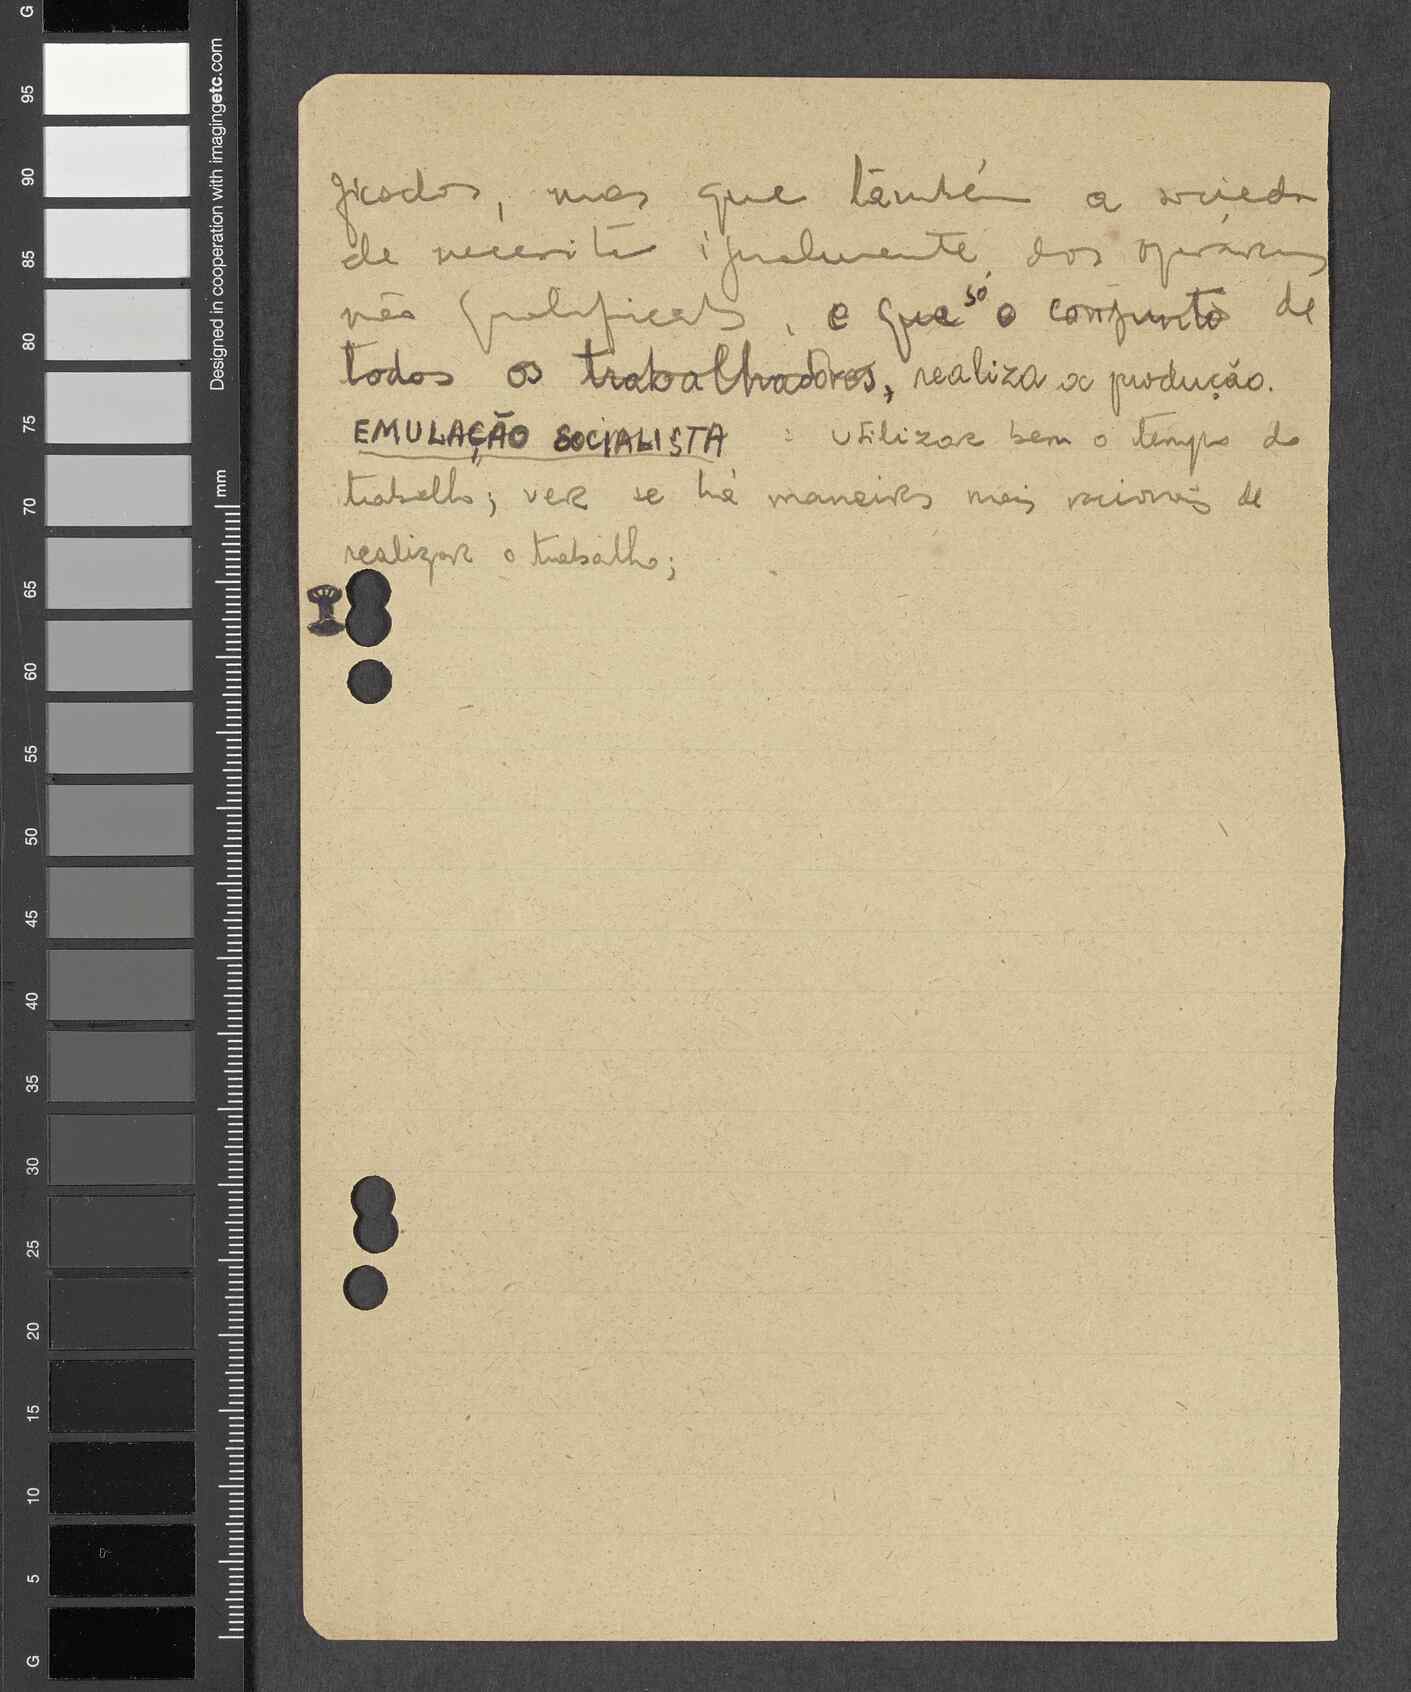 ficados, mas que também a socieda
de necessita igualmente dos operários
não qualificados, e que só o conjunto de
todos os trabalhadores, realiza a produção.
EMULAÇÃO SOCIALISTA : utilizar bem o tempo do
trabalho; ver se há maneiras mais racionais de
realizar o trabalho;
Designed in cooperation with imagingetc.com
mm
G
95
90
85
80
75
70
65
60
55
50
45
40
35
30
25
20
15
10
5
G